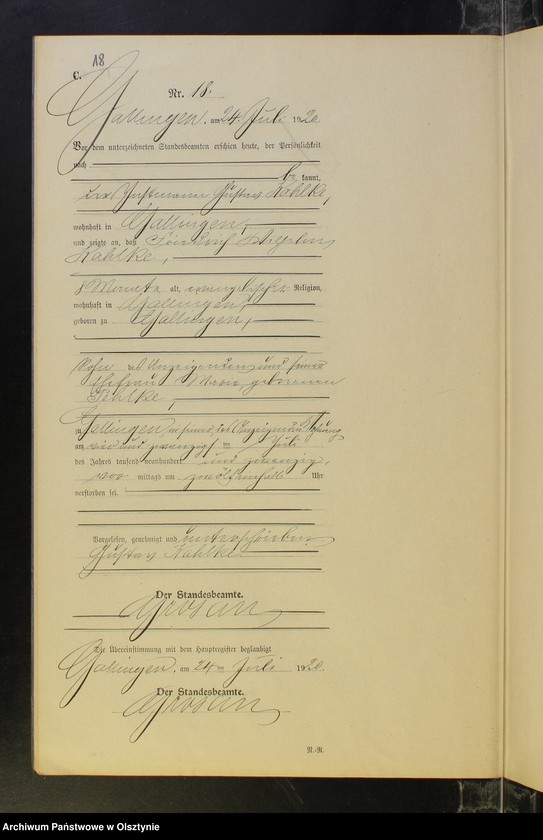 18
C.
Nr. 18.
Gallingen, am 24. Juli 1920
Vor dem unterzeichneten Standesbeamten erschien heute, der Persönlichkeit
nach
be kannt,
der Gustav Kahlke,
wohnhaft in Gallingen,
und zeigte an, daß Wilhelm
Kahlke,
8 Monate alt, evangelischer Religion,
wohnhaft in Gallingen,
geboren zu Gallingen,
Sohn des Anzeigenden und seiner
Ehefrau geborenen
zu Gallingen in seiner des Anzeigenden Wohnung
am vier und zwanzigsten Juli
des Jahres tausend neunhundert und zwanzig,
vor mittags um Uhr
verstorben sei.
Vorgelesen, genehmigt und unterschrieben
Gustav Kahlke
Der Standesbeamte.
Die Übereinstimmung mit dem Hauptregister beglaubigt
Gallingen, am 24ten Juli 1920.
Der Standesbeamte.
N.-R.
Archiwum Państwowe w Olsztynie